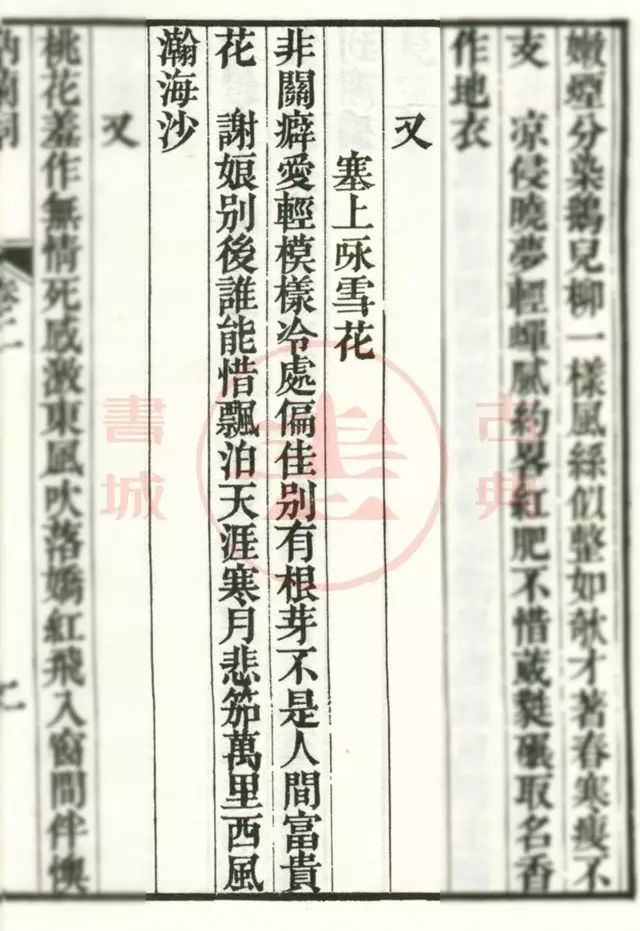 嫩煙分染鵝兒柳一樣風絲似整如欹才著春寒瘦不
支　凉侵曉夢輕蟬膩約畧紅肥不惜葳蕤碾取名香
作地衣
又
塞上咏雪花
非關癖愛輕模樣冷處偏佳别有根芽不是人間富貴
花　謝娘别後誰能惜飄泊天涯寒月悲笳萬里西風
瀚海沙
又
桃花羞作無情死感激東風吹落嬌紅飛入窗間伴懊
古典
書城